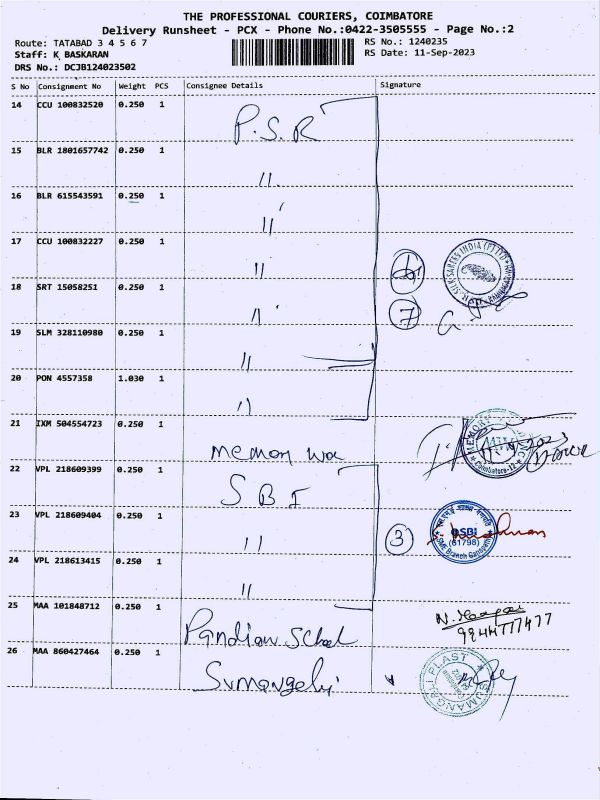 THE PROFESSIONAL COURIERS, COIMBATORE
Delivery Runsheet - PCX - Phone No.:0422-3505555 - Page No.:2
Route: TATABAD 3 4 5 6 7
RS No.: 1240235
Staff: K BASKARAN
RS Date: 11-Sep-2023
DRS No.: DCJB124023502
S No Consignment No Weight PCS Consignee Details Signature
14 CCU 100832520 0.250 1 P.S.R
15 BLR 1801657742 0.250 1 "
16 BLR 615543591 0.250 1 "
17 CCU 100832227 0.250 1 "
18 SRT 15058251 0.250 1 "
7
19 SLM 328110980 0.250 1 "
20 PON 4557358 1.030 1 "
21 IXM 504554723 0.250 1 memory
Coimbatore-12
22 VPL 218609399 0.250 1 SBI
23 VPL 218609404 0.250 1 "
3
SBI
(61798)
SME Branch
24 VPL 218613415 0.250 1 "
25 MAA 101848712 0.250 1 Pandian School
9844777477
26 MAA 860427464 0.250 1 Sumangali
SUMANGALI PLAST